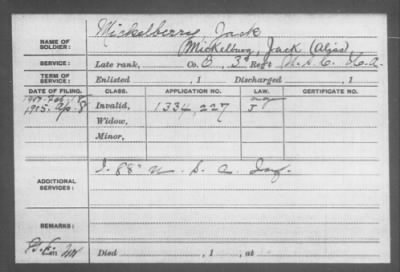 NAME OF SOLDIER: Mickelberry, Jack
Mickelburg, Jack (Alias)
SERVICE: Late rank, Co. B, 3d Reg't U.S.C. H.A.
TERM OF SERVICE: Enlisted , 1 Discharged , 1
DATE OF FILING. CLASS. APPLICATION NO. LAW. CERTIFICATE NO.
1915. Ap. 8 Invalid, 1.334,227
Widow,
Minor,
ADDITIONAL SERVICES: I. 88" U. S. C. Inf.
REMARKS:
Died , 1 , at